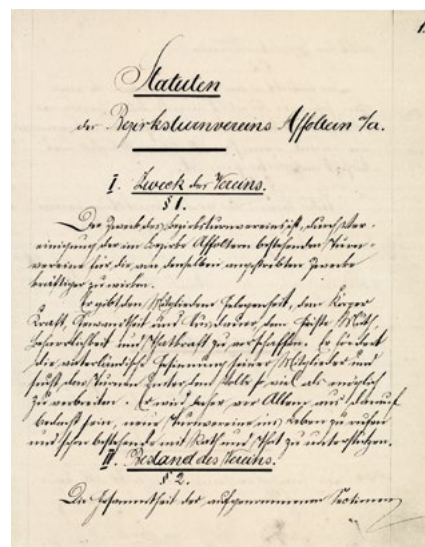 Statuten
des Bezirksturnvereins Affoltern a/a.
I. Zweck des Vereins.
§ 1.
Der Zweck des Bezirksturnvereins ist, durch Ver-
einigung der im Bezirke Affoltern bestehenden Turn-
vereine für die von denselben angestrebten Zwecke
kräftiger zu wirken.
Er gibt den Mitgliedern Gelegenheit, dem Körper
Kraft, Gewandtheit und Ausdauer, dem Geiste Muth,
Beharrlichkeit und Thatkraft zu verschaffen. Er fördert
die vaterländische Gesinnung seiner Mitglieder und
sucht das Turnen unter dem Volke so viel als möglich
zu verbreiten. Er wird daher vor Allem aus darauf
bedacht sein, neue Turnvereine ins Leben zu rufen
und schon bestehende mit Rath und That zu unterstützen.
II. Bestand des Vereins.
§ 2.
Die Gesammtheit der aufgenommenen Sectionen